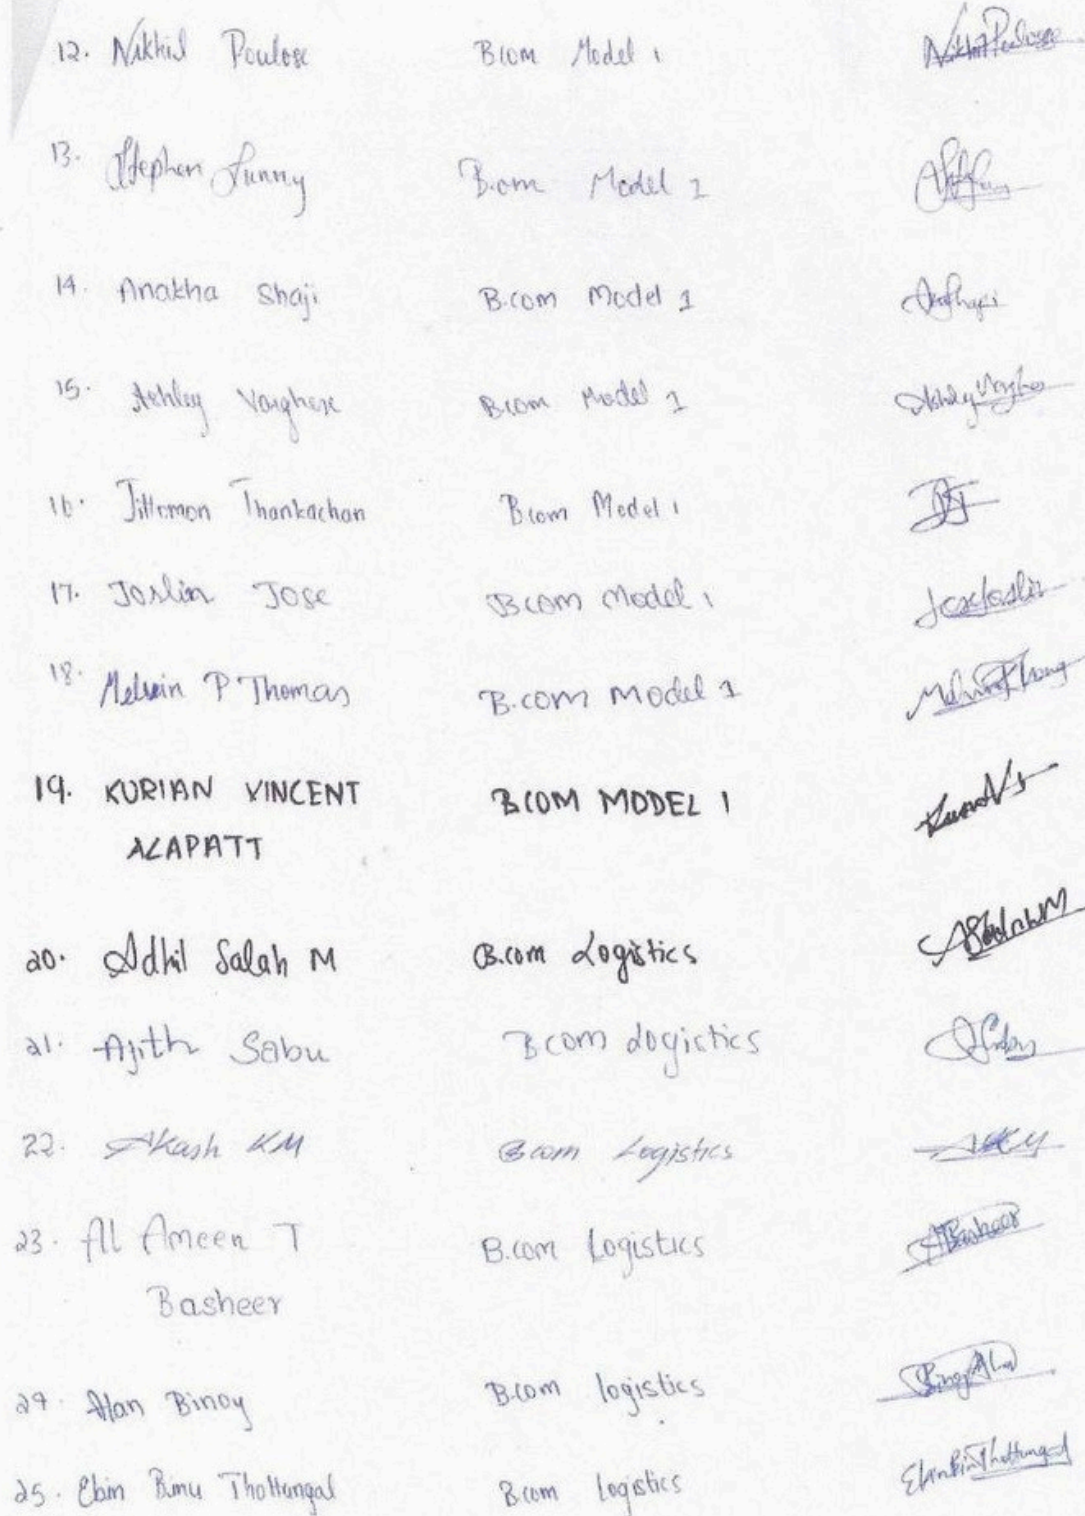 12. Nikhil Poulose Bcom Model 1 Nikhil Poulose
13. Stephen Sunny B.com Model 1
14. Anakha Shaji B.com Model 1
15. Ashley Varghese Bcom Model 1 Ashley Varghese
16. Jittomon Thankachan Bcom Model 1
17. Joslin Jose Bcom Model 1
18. Melvin P Thomas B.com Model 1
19. KURIAN VINCENT BCOM MODEL 1
ALAPATT
20. Adhil Salah M B.com Logistics
21. Ajith Sabu Bcom Logistics
22. Akash KM Bcom Logistics
23. Al Ameen T B.com Logistics ABasheer
Basheer
24. Alan Binoy B.com logistics
25. Ebin Binu Thottungal Bcom Logistics